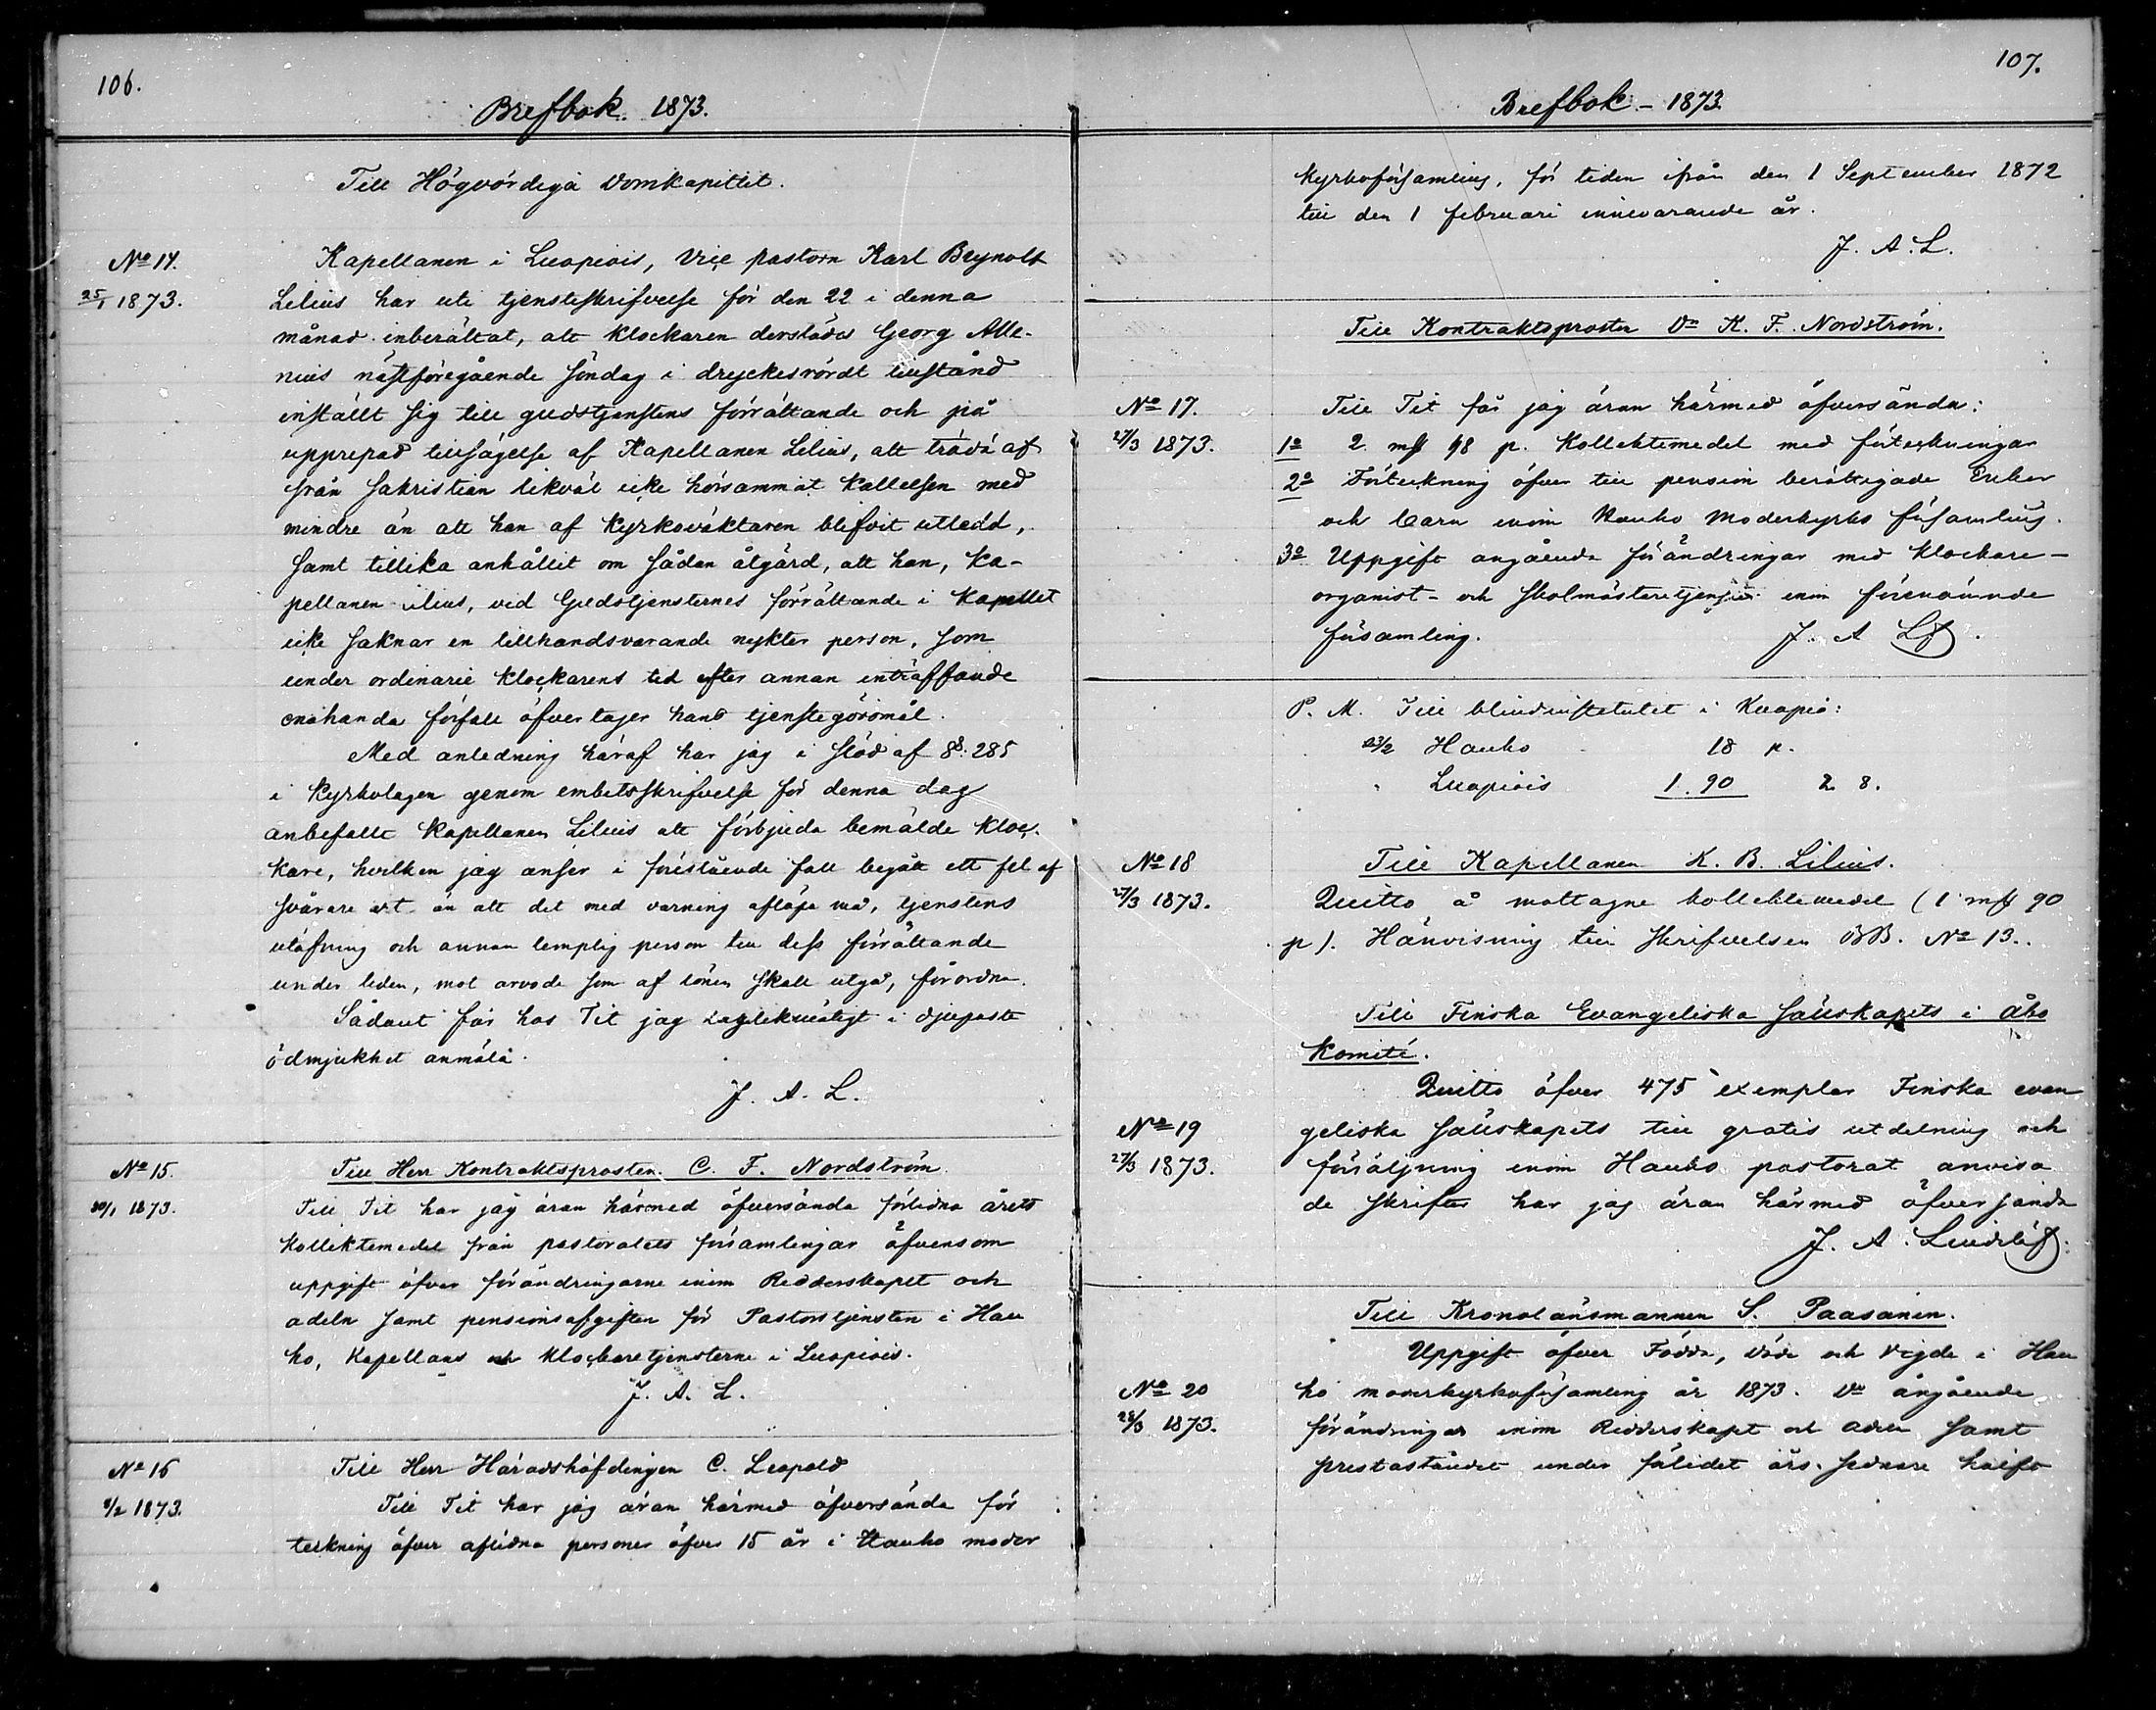 106.
Brefbok. 1873.
Till Högvördiga Domkapitlet.
No 14.
25/1 1873.
Kapellanen i Luopiois, Vice pastorn Karl Brynolf
Lilius har uti tjensteskrifvelse för den 22 i denna
månad inberättat, att klockaren derstädes Georg Alle-
nius nästföregående söndag i dryckesrördt tillstånd
inställt sig till gudstjenstens förrättande och på
upprepad tillsägelse af Kapellanen Lilius, att träda af
från sakristian likväl icke hörsammat kallelsen med
mindre än att han af kyrkoväktaren blifvit utledd,
samt tillika anhållit om sådan åtgärd, att han, Ka-
pellanen Lilius, vid Gudstjensternes förrättande i Kapellet
icke saknar en tillhandsvarande nykter person, som
under ordinarie klockarens tid efter annan inträffande
enahanda förfall öfvertager hans tjenstegöromål.
Med anledning häraf har jag i stöd af §§ 285
i Kyrkolagen genom embetsskrifvelse för denna dag
anbefallt Kapellanen Lilius att förbjuda bemälde kloc-
kare, hvilken jag anser i förestående fall begått ett fel af
svårare art än att det med varning aflöpa må, tjenstens
utöfning och annan lemplig person till dess förrättande
under tiden, mot arvode som af lönen skall utgå, förordna.
Sådant får hos Tit jag pligtskyldigst i djupaste
ödmjukhet anmäla.
J. A. L.
No 15.
30/1 1873.
Till Herr Kontraktsprosten C. F. Nordström
Till Tit har jag äran härmed öfversända förlidna årets
Kollektemedel från pastoratets församlingar äfvensom
uppgift öfver förändringarne inom Ridderskapet och
adeln samt pensionsafgiften för Pastorstjensten i Hau
ho, Kapellans och klockaretjensterne i Luopiois.
J. A. L.
No 16
8/2 1873.
Till Herr Häradshöfdingen C. Leopold
Till Tit har jag äran härmed öfversända för
teckning öfver aflidna personer öfver 15 år i Hauho moder
107.
Brefbok - 1873.
kyrkoförsamling, för tiden ifrån den 1 September 1872
till den 1 februari innevarande år.
J. A. L.
Till Kontraktsprosten Dr K. F. Nordström.
No 17.
27/3 1873.
Till Tit får jag äran härmed öfversända:
1o 2 mk 98 p. Kollektemedel med förteckningar
2o Förteckning öfver till pension berättigade Enkor
och barn inom Hauho Moderkyrko församling.
3o Uppgift angående förändringar med klockare-
organist- och skolmästaretjenster inom förenämnde
församling. J. A. Lf.
P. M. Till blindinstitutet i Kuopio:
23/2 Hauho 18 p.
" Luopiois 1.90 2. 8.
No 18
27/3 1873.
Till Kapellanen K. B. Lilius.
Quitto å mottagne kollektemedel (1 mk 90
p). Hänvisning till skrifvelsen BB. No 13.
Till Finska Evangeliska Sällskapets i Åbo
Komité.
No 19
27/3 1873.
Quitto öfver 475 exemplar Finska evan
geliska sällskapets till gratis utdelning och
försäljning inom Hauho pastorat anvisa
de skrifter har jag äran härmed öfversända
J. A. Lindelöf.
Till Kronolänsmannen S. Paasonen.
No 20
28/3 1873.
Uppgift öfver Födda, döde och vigde i Hau
ho moderkyrkoförsamling år 1873. Do angående
förändringar inom Ridderskapet och adeln samt
prestaståndet under förlidet års sednare hälft